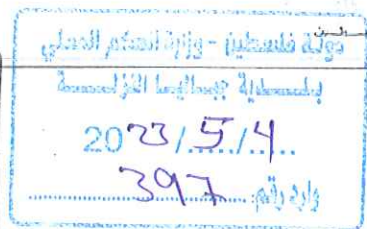 دولة فلسطين - وزارة الحكم المحلي
بلدية جباليا النزلة
2023/5/4
وارد رقم: 397